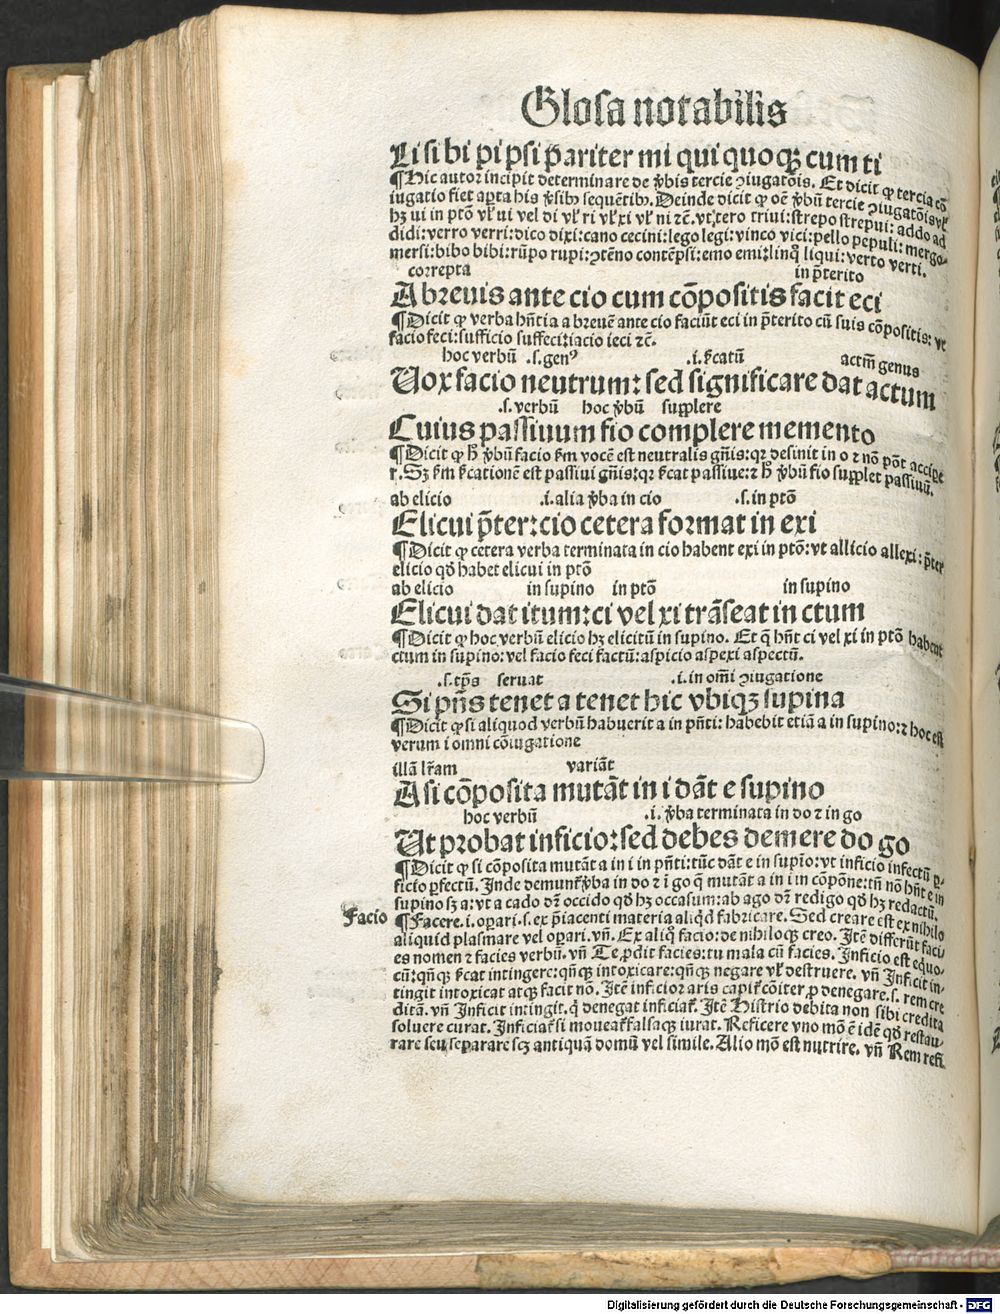 Glosa notabilis
Li si bi pi psi pariter mi qui quoqꝫ cum ti
¶Hic autor incipit determinare de v̄bis tercie ꝯiugatōis. Et dicit ꝙ tercia cō
iugatio fiet aꝑta his v̄sibꝰ sequētibꝰ. Deinde dicit ꝙ oē v̄bū tercie ꝯiugatōis vel
hꝫ ui in ptō vł ui vel di vł ri vł xi vł ni ꝛc. vt, tero triui: strepo strepui: addo ad
didi: verro verri: dico dixi: cano cecini: lego legi: vinco vici: pello pepuli: mergo
mersi: bibo bibi: rūpo rupi: ꝯtēno contēpsi: emo emi: linqͦ liqui: verto verti.
correpta in p̄terito
A breuis ante cio cum cōpositis facit eci
¶Dicit ꝙ verba hn̄tia a breuē ante cio faciūt eci in p̄terito cū suis cōpositis: vt
facio feci: sufficio suffeci: iacio ieci ꝛc.
hoc verbū .s. genꝰ .i. ſcatū actm̄ genus
Uox facio neutrum: sed significare dat actum
.s. verbū hoc v̄bū supplere
Cuius passiuum fio complere memento
¶Dicit ꝙ h̄ v̄bū facio ẜm vocē est neutralis gn̄is: qꝛ desinit in o ⁊ nō pōt accipe
r. Sꝫ ẜm ſcationē est passiui gn̄is: qꝛ ſcat passiue: ⁊ h̄ v̄bū fio supplet passiuū.
ab elicio .i. alia v̄ba in cio .s. in ptō
Elicui p̄ter: cio cetera format in exi
¶Dicit ꝙ cetera verba terminata in cio habent exi in ptō: vt allicio allexi: p̄ter
elicio qd̄ habet elicui in ptō
ab elicio in supino in ptō in supino
Elicui dat itum: ci vel xi trāseat in ctum
¶Dicit ꝙ hoc verbū elicio hꝫ elicitū in supino. Et q̄ hn̄t ci vel xi in ptō habent
ctum in supino: vel facio feci factū: aspicio aspexi aspectū.
.s. tp̄s seruat .i. in omī ꝯiugatione
Si pn̄s tenet a tenet hic vbiqꝫ supina
¶Dicit ꝙ si aliquod verbū habuerit a in pn̄ti: habebit etiā a in supino: ⁊ hoc est
verum i omni cōiugatione
illā lr̄am variāt
A si cōposita mutāt in i dāt e supino
hoc verbū .i. v̄ba terminata in do ⁊ in go
Ut probat inficio: sed debes demere do go
¶Dicit ꝙ si cōposita mutāt a in i in pn̄ti: tūc dāt e in supīo: vt inficio infectū ꝑ-
ficio ꝑfectū. Inde demunt̃ v̄ba in do ⁊ ī go q̄ mutāt a in i in cōpōne: tn̄ nō hn̄t e in
supino sꝫ a: vt a cado dr̄ occido qd̄ hꝫ occasum: ab ago dr̄ redigo qd̄ hꝫ redactū.
Facio
¶Facere .i. oꝑari .s. ex p̄iacenti materia aliqͥd fabricare. Sed creare est ex nihilo
aliquid plasmare vel oꝑari. vn̄. Ex aliqͦ facio: de nihiloqꝫ creo. Itē differūt faci
es nomen ⁊ facies verbū. vn̄ Te ꝑdit facies: tu mala cū facies. Inficio est equo
cū: qn̄qꝫ ſcat intingere: qn̄qꝫ intoxicare: qn̄qꝫ negare vł destruere. vn̄ Inficit in-
tingit intoxicat atqꝫ facit nō. Itē inficior aris capit̃ cōiter ꝓ denegare .s. rem cre
ditā. vn̄ Inficit intingit. qͥ denegat inficiat̃. Itē Histrio debita non sibi credita
soluere curat. Inficiat̃ si moueat̃ falsaqꝫ iurat. Reficere vno mō ē idē qd̄ restau-
rare seu separare scꝫ antiquā domū vel simile. Alio mō est nutrire. vn̄ Rem refi.
Digitalisierung gefördert durch die Deutsche Forschungsgemeinschaft - DFG